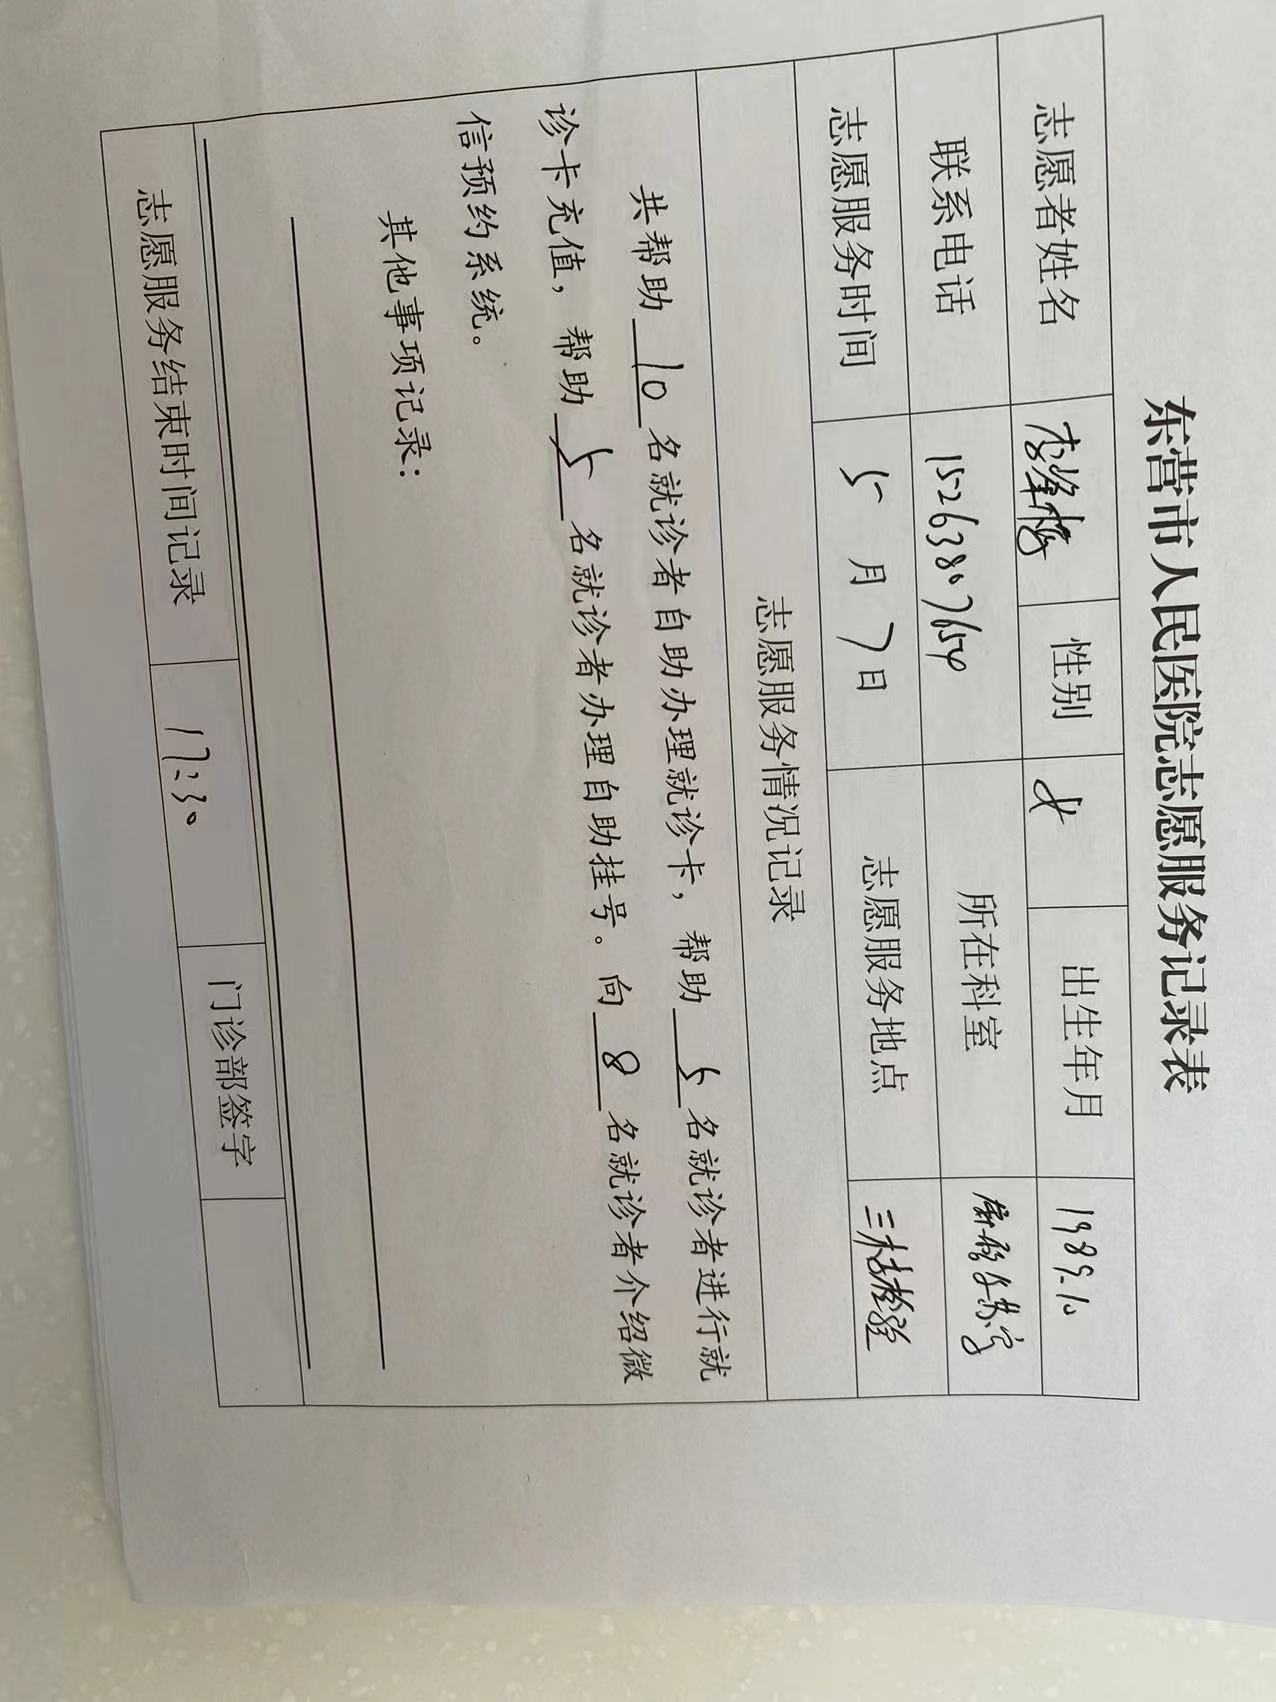 东营市人民医院志愿服务记录表
志愿者姓名 李 性别 女 出生年月 1989.10
联系电话 15263807654 所在科室
志愿服务时间 5月7日 志愿服务地点 三楼检验
志愿服务情况记录
共帮助 10 名就诊者自助办理就诊卡，帮助 5 名就诊者进行就
诊卡充值，帮助 5 名就诊者办理自助挂号。向 8 名就诊者介绍微
信预约系统。
其他事项记录：
志愿服务结束时间记录 17:30 门诊部签字